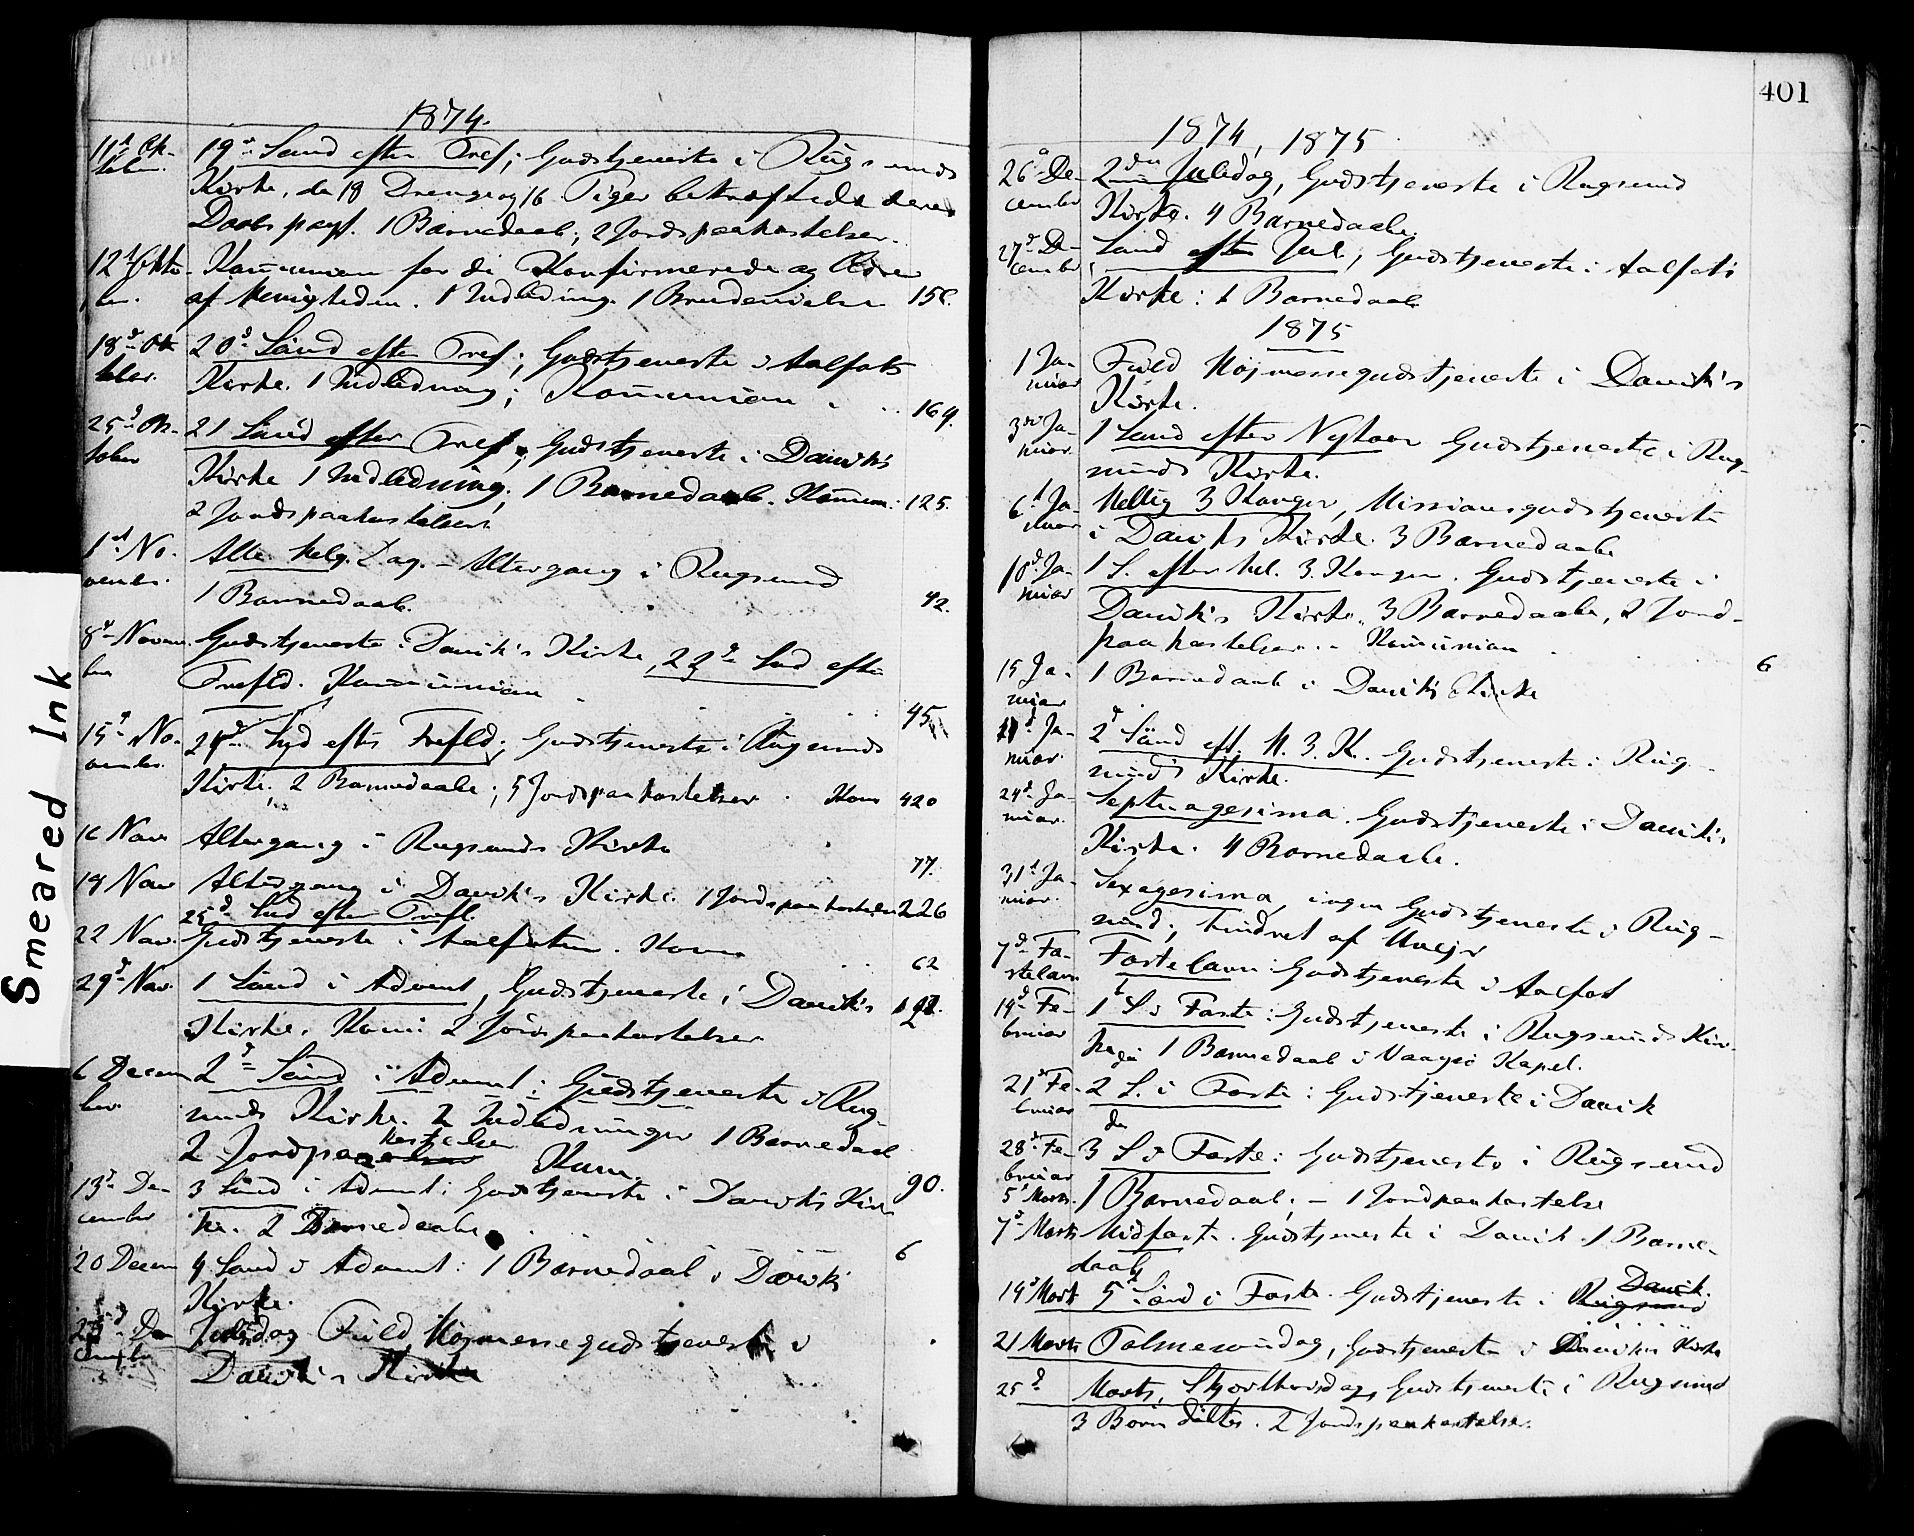 1874.
11t Ok-
tober.
19d Sønd efter Tref; Gudstjeneste i Rugsunds
Kirke, da 18 Drenge og 16 Piger bekræftede deres
Daabspagt. 1 Barnedaab; 2 Jordspaakastelser.
12t Okto-
ber.
Kommunion for de Konfirmerede og Ældre
af Menigheden. 1 Indledning. 1 Brudevielse
18d Ok
tober.
20d Sønd efter Tref; Gudstjeneste i Aalfots
Kirke. 1 Indledning; Kommunion . . . 164.
25d Ok-
tober
21 Sønd efter Tref; Gudstjeneste i Daviks
Kirke 1 Indledning; 1 Barnedaab. Kommun: 125.
2 Jordspaakastelser
1st No-
vember.
Alle Helg. Dag. – Altergang i Rugsund
1 Barnedaab. 42.
8d Novem
ber
Gudstjeneste i Davik's Kirke, Snd efter
Trefld. Kommunion . . . 45
15d No-
vember.
24d Snd efter Trefld; Gudstjeneste i Rugsunds
Kirke; 2 Barnedaabe; 5 Jordspaakastelser. Kom 420
16 Nov
Altergang i Rugsunds Kirke 77.
18 Nov
Altergang i Davik's Kirke. 1 Jordspaakastelse 226
25d Snd efter Trefl.
22 Nov.
Gudstjeneste i Aalfoten. Kom. 62
29d Nov.
1 Sønd i Advent, Gudstjeneste i Davik's
Kirke. Kom: 2 Jordspaakastelser
6 Decem
ber
2d Sønd i Advent: Gudstjeneste i Rug-
sunds Kirke. 2 Indledninger 1 Barnedaab
2 Jordpaakastelser Kom 90.
13d De-
cember
3 Sønd i Advent: Gudstjeneste i Daviks Kir-
ke. 2 Barnedaabe.
20 Decem
4 Sønd i Advent: 1 Barnedaab i Daviks 6
Kirke.
25d De-
cember
Juledag Fuld Højmessegudstjeneste i
Davik's Kirke
401
1874, 1875.
26d De-
cember
2den Juledag, Gudstjeneste i Rugsund
Kirke. 4 Barnedaabe.
27d De-
cember
Sønd efter Jul, Gudstjeneste i Aalfots
Kirke: 1 Barnedaab
1875
1 Ja-
nuar
Fuld Højmessegudstjeneste i Davik's
Kirke.
3die Ja-
nuar.
1 Sønd efter Nytaar Gudstjeneste i Rug-
sunds Kirke.
6t Ja-
nuar
Hellig 3 Konger, Missionsgudstjeneste
i Daviks Kirke. 3 Barnedaabe
10d Ja-
nuar
1 S. efter Hel. 3. Konger. Gudstjeneste i
Davik's Kirke, 3 Barnedaabe, 2 Jord-
paakastelser. – Kommunion . . 6
15 Ja-
nuar
1 Barnedaab i Daviks Kirke
Ja-
nuar.
2d Sønd eft. H. 3. K. Gudstjeneste i Rug-
sunds Kirke.
24d Ja-
nuar.
Septuagesima. Gudstjeneste i Davik's
Kirke. 4 Barnedaabe.
31t Ja-
nuar.
Sexagesima, ingen Gudstjeneste i Rug-
sund, hindret af Uvejr
7d Fa-
stelavn
Fastelavn: Gudstjeneste i Aalfot
14d Fe-
bruar
1t S. i Faste: Gudstjeneste i Rugsunds Kir-
ke 1 Barnedaab i Vaagsø Kapel.
21d Fe-
bruar
2 S. i Faste: Gudstjeneste i Davik
28d Fe-
bruar
3 S. i Faste: Gudstjeneste i Rugsund
5t Marts.
1 Barnedaab; – 1 Jordpaakastelse
7d Marts
Midfaste. Gudstjeneste i Davik. 1 Barne-
daab
14d Marts
5t Sønd i Faste. Gudstjeneste i Rugsund Davik.
21 Marts
Palmesøndag, Gudstjeneste i Daviks Kirke
25d Marts, Skjærthorsdag, Gudstjeneste i Rugsund
3 Børn døbtes. 2 Jordspaakastelser.
Smeared Ink